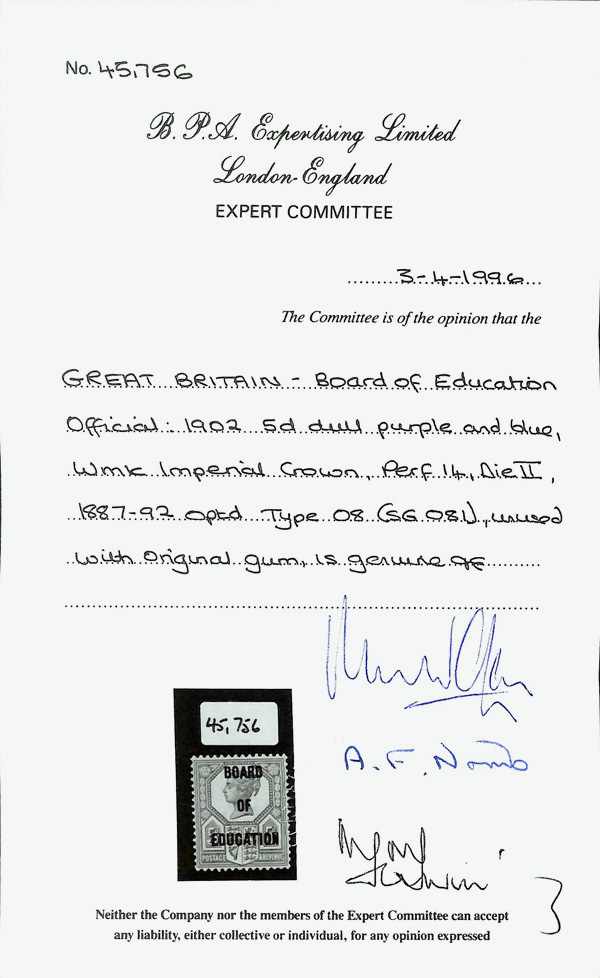 No. 45,756
B. P.A. Expertising Limited
London-England
EXPERT COMMITTEE
3-4-1996
The Committee is of the opinion that the
GREAT BRITAIN - Board of Education
Official: 1902 5d dull purple and blue,
Wmk Imperial Crown, Perf 14, Die II,
1887-92 optd Type 08 (SG 081), unused
with original gum, is genuine
45,756
BOARD
OF
EDUCATION
POSTAGE & REVENUE
A. F.
Neither the Company nor the members of the Expert Committee can accept
any liability, either collective or individual, for any opinion expressed